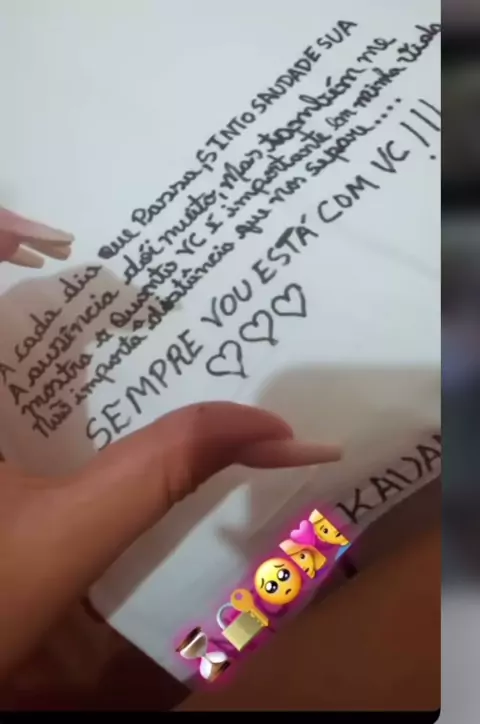 A cada dia que Passa, SINTO SAUDADE SUA
A ausência dói muito, Mas também me
mostra o Quanto VC é importante em minha vida
Não importa a distância que nos separe....
SEMPRE VOU ESTÁ COM VC !!!
KAUA